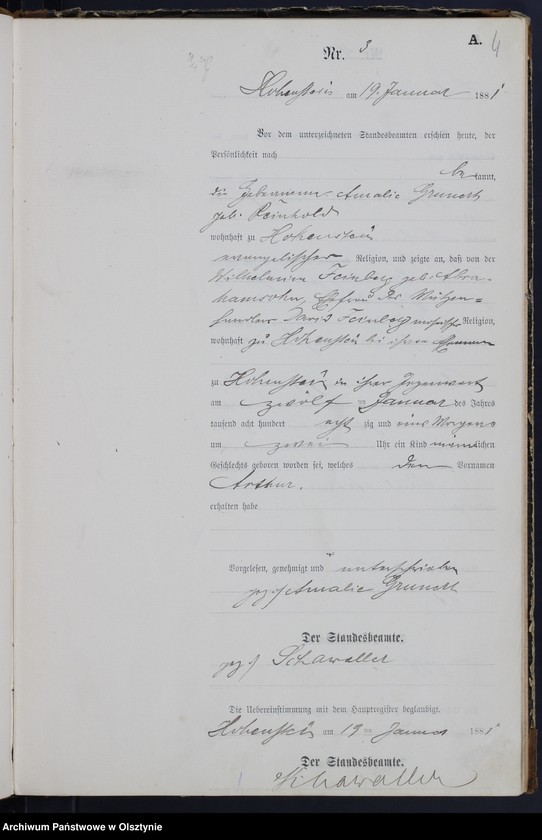 A. 4
Nr. 3
Hohenstein am 19. Januar 1881
Vor dem unterzeichneten Standesbeamten erschien heute, der
Persönlichkeit nach
be kannt,
die Hebamme Amalie Grunert
geb. Reinhold
wohnhaft zu Hohenstein
evangelischer Religion, und zeigte an, daß von der
Wilhelmine Feinberg geb. Abra-
hamsohn, Ehefrau des Mützen-
händlers David Feinberg mosaischer Religion,
wohnhaft zu Hohenstein bei ihrem Ehemanne
zu Hohenstein in ihrer Gegenwart
am zwölf ten Januar des Jahres
tausend acht hundert acht zig und eins Morgens
um zwei Uhr ein Kind männlichen
Geschlechts geboren worden sei, welches den Vornamen
Arthur.
erhalten habe
Vorgelesen, genehmigt und unterschrieben
gez. Amalie Grunert
Der Standesbeamte.
gez. Schawaller
Die Uebereinstimmung mit dem Hauptregister beglaubigt.
Hohenstein am 19 ten Januar 1881
Der Standesbeamte.
Schawaller
Archiwum Państwowe w Olsztynie